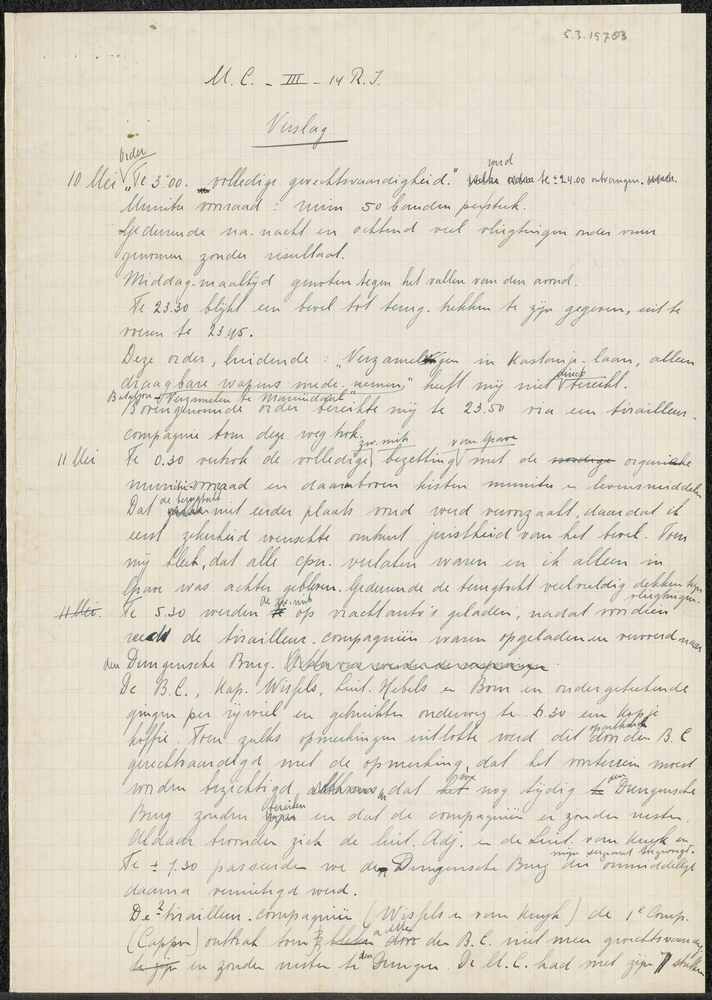 5.3.15703
M.C. - III - 14 R.I.
Verslag
order
10 Mei "Te 3.00. "volledige gevechtsvaardigheid." werd te ± 24.00 ontvangen.
Munitie voorraad : ruim 50 banden per stuk.
Gedurende na-nacht en ochtend veel vliegtuigen onder vuur
genomen zonder resultaat.
Middag-maaltijd genoten tegen het vallen van den avond.
Te 23.30 blijkt een bevel tot terug-trekken te zijn gegeven, uit te
voeren te 23.45.
Deze order, luidende : "Verzamelen in Kastanje-laan, alleen
draagbare wapens mede-nemen" heeft mij niet direct bereikt.
Bataljon-Verzamelen te
Bovengenoemde order bereikte mij te 23.50 via een tirailleur-
compagnie toen deze weg trok.
zw. mitr. van Grave
11 Mei Te 0.30 vertrok de volledige bezetting met de organieke
munitie-voorraad en daarenboven kisten munitie en levensmiddelen
Dat de terugtocht niet eerder plaats vond werd veroorzaakt, daar dat ik
eerst zekerheid wenschte omtrent juistheid van het bevel. Toen
mij bleek, dat alle cpn. verlaten waren en ik alleen in
Grave was achter gebleven. Gedurende de terugtocht veelvuldig dekken tegen
vliegtuigen.
11 Mei. Te 5.30 werden de zw. mitr. op vrachtauto's geladen, nadat voordien
reeds de tirailleur-compagnieën waren opgeladen en vervoerd naar
den Dungensche Brug.
De B.C., Kap. Wissels, Luit. Nebels en Bom en ondergeteekende
gingen per rijwiel en gebruikten onderweg te 6.30 een kopje
koffie. Toen zulks opmerkingen uitlokte werd dit door den B.C.
gerechtvaardigd met de opmerking, dat het voorterrein moest
worden bezichtigd, dat nog tijdig den Dungensche
Brug zouden bereiken en dat de compagnieën er zonder nesten.
Aldaar bevonden zich de luit. Adj. en de Luit. van Kuyk en
mijn sergeant toegevoegd.
Te ± 7.30 passeerden we den Dungensche Brug die onmiddellijk
daarna vernietigd werd.
De 2 tirailleur-compagnieën (Wissels en van Kuyk) de 1e Comp.
(Cappon) ontbrak toen door den B.C. niet meer gevechtsvaardig
en zonder nesten te den Dungen. De M.C. had met zijn stukken